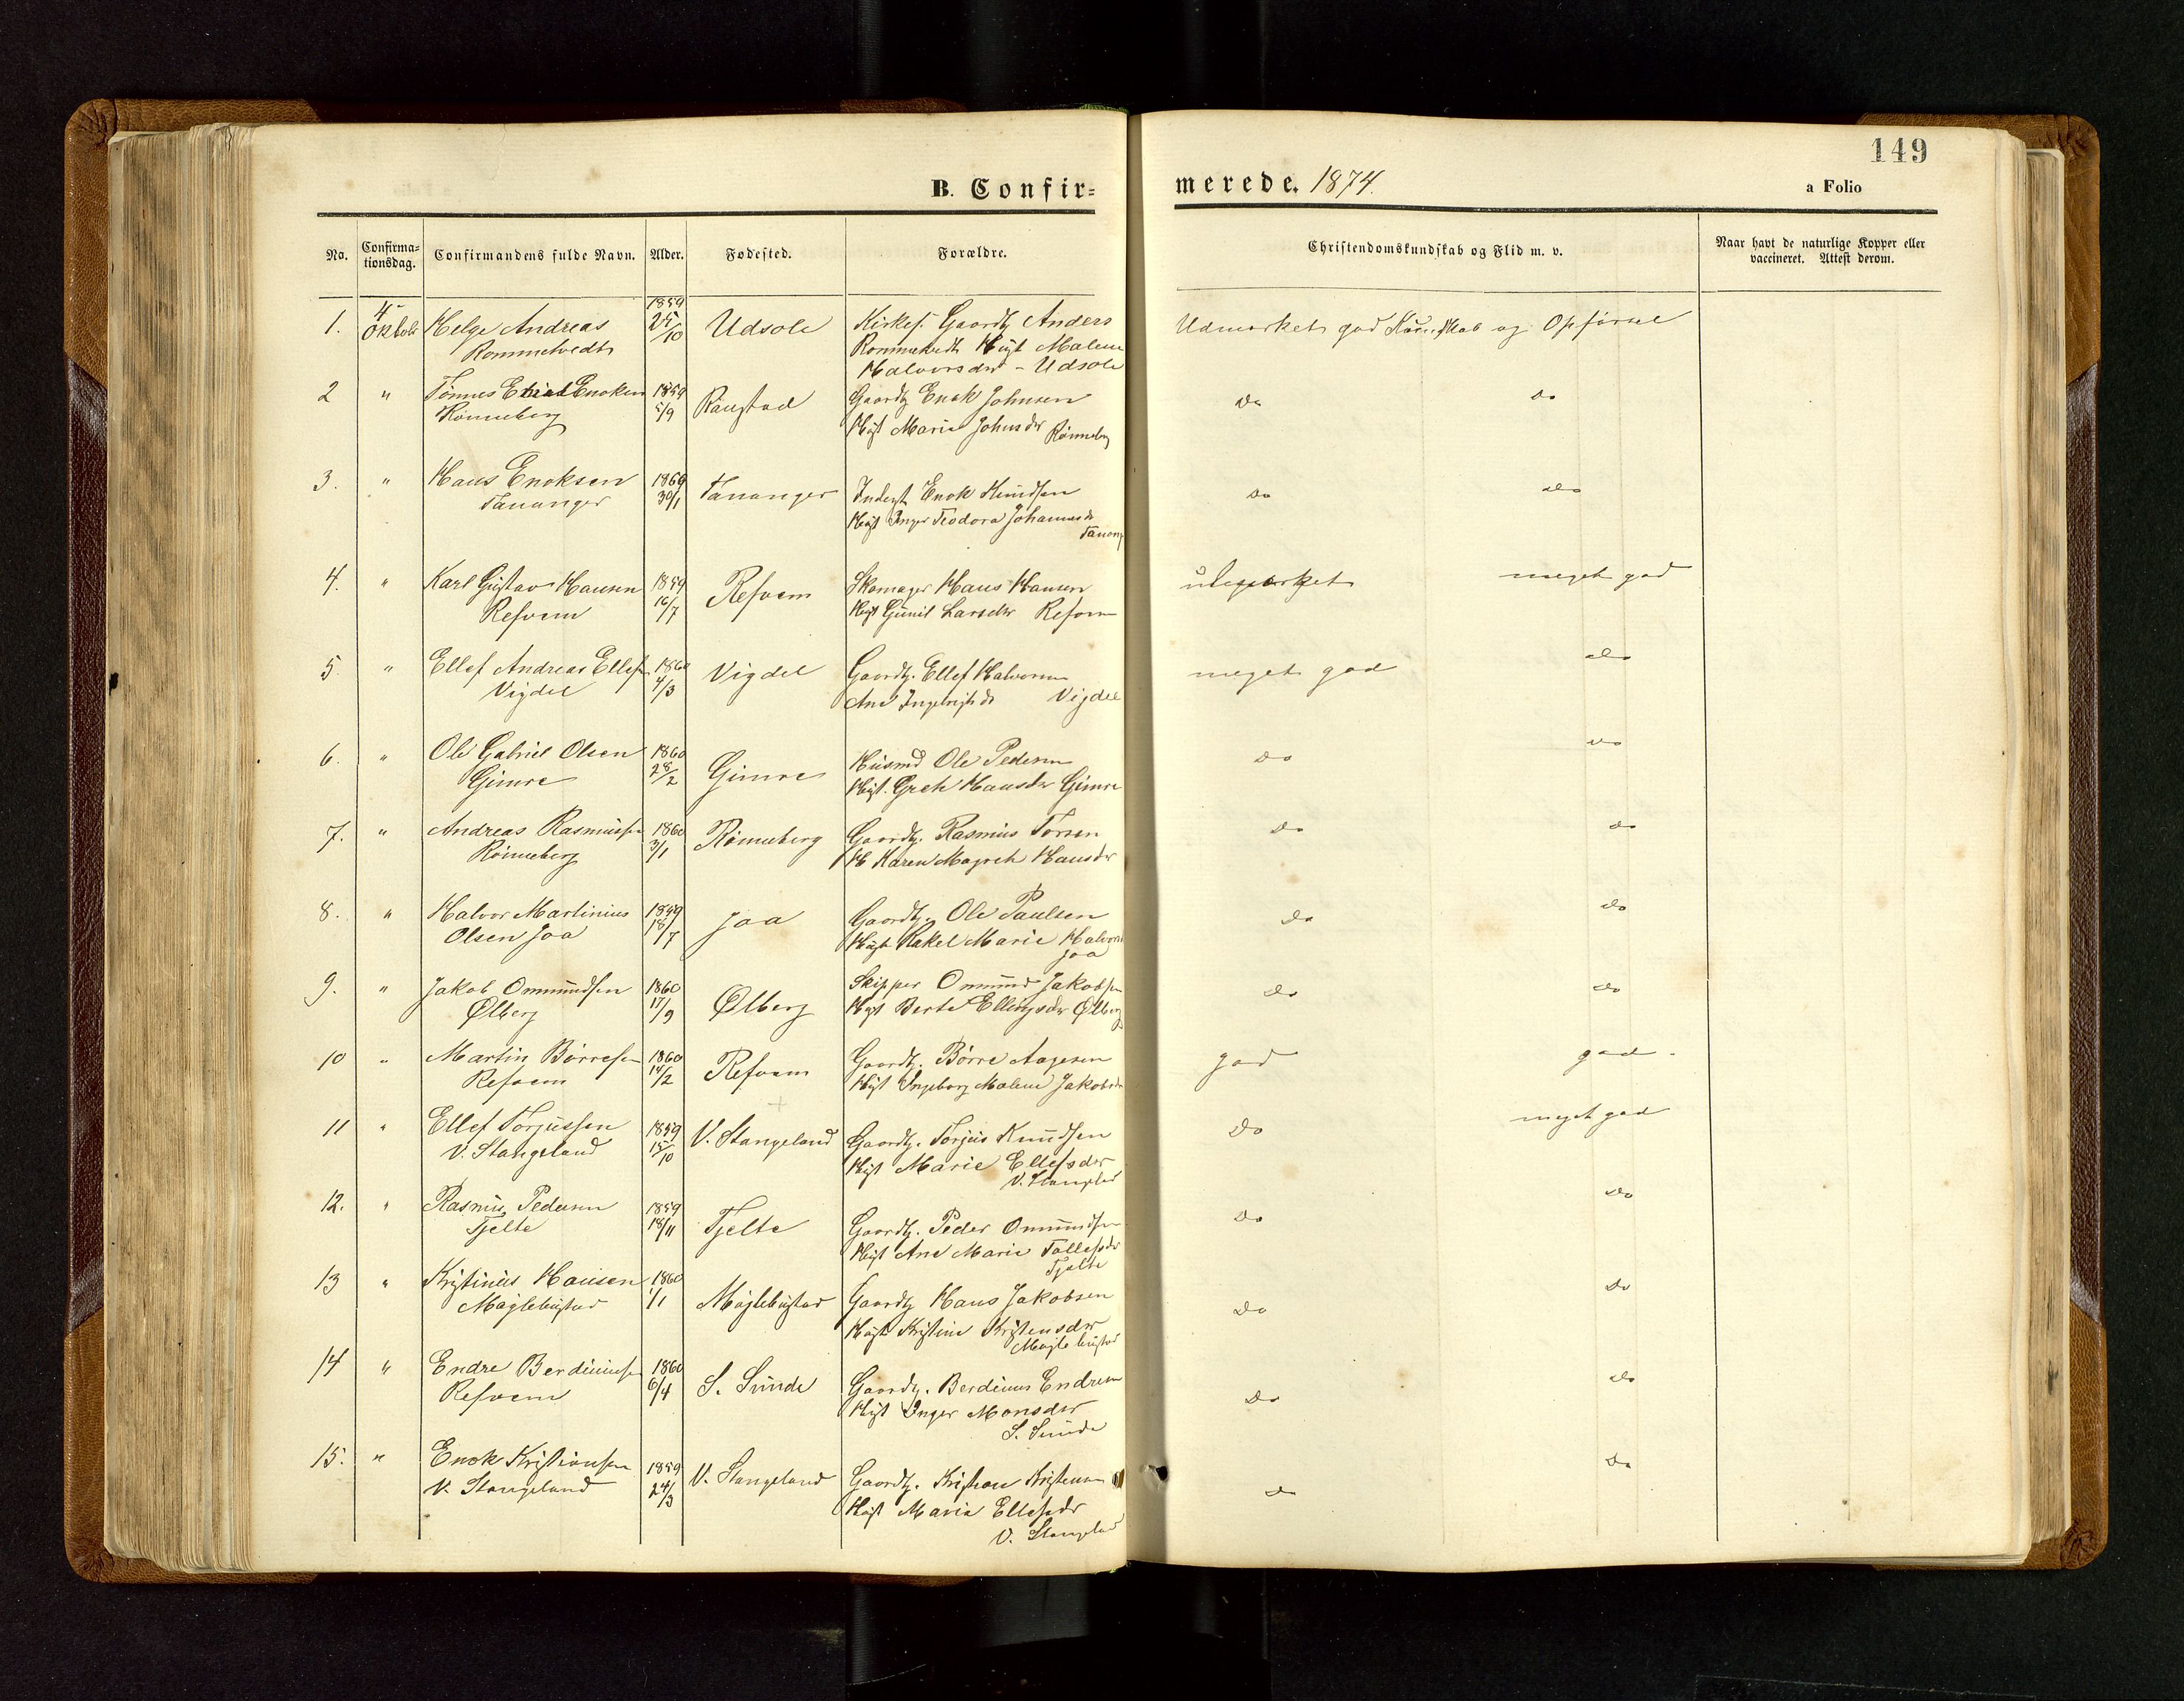 149
B. Confir=
merede. 1874.
a Folio
No.
Confirma=
tionsdag.
Confirmandens fulde Navn.
Alder.
Fødested.
Forældre.
Christendomskundskab og Flid m. v.
Naar havt de naturlige Kopper eller
vaccineret. Attest derom.
1. 4 Oktob Helge Andreas 1859 25/10 Udsole Kirkes. Gaardbr Anders Udmærket god Kundskab og Opførsel
Rommetvedt Rommetvedt Hust Malene
Halvorsdtr - Udsole
2 " Tønnes Enoksen 1859 5/9 Raustad Gaardbr Enok Johnsen do do
Rønneberg Hust Marie Johnsdtr Rønneberg
3. " Hans Enoksen 30/1 Tananger Enok Knudsen do do
Tananger Hust Inger Teodora Johannesdr
Tanang
4. " Karl Gustav Hansen 1859 16/7 Refsem Skomager Hans Hansen udmærket meget god
Refsem Hust Gunil Larsdtr Refsem
5. " Ellef Andreas Ellefsen 1860 4/3 Vigdel Gaardbr. Ellef Halvorsen meget god do
Vigdel Ane Ingebrigtsdr Vigdel
6. " Ole Gabriel Olsen 1860 28/2 Gimre Husmd Ole Pedersen do do
Gimre Hust. Grete Hansdtr Gimre
7. " Andreas Rasmussen 1860 3/1 Rønneberg Gaardbr. Rasmus Torsen do do
Rønneberg H Karen Magrete Hansdtr
8. " Halvor Martinius 1859 18/7 Joa Gaardbr. Ole Paulsen do do
Olsen Joa Hust Rakel Marie Halvors
Joa
9. " Jakob Ommundsen 1860 17/9 Ølberg Skipper Ommund Jakobsen do do
Ølberg Hust Berte Ellingsdtr Ølberg
10 " Martin Børresen 1860 14/2 Refsem Gaardbr. Børre Aagesen god god.
Refsem Hust Ingeborg Malene Jakobsdr
11 " Ellef Torjussen 1859 15/10 V. Stangeland Gaardbr. Torjus Knudsen do meget god
V. Stangeland Hust Marie Ellefsdtr
V. Stangelad
12. " Rasmus Pedersen 1859 18/11 Tjelte Gaardbr. Peder Ommundsen do do
Tjelte Hust Ane Marie Tollefsdtr
Tjelte
13 " Kristinius Hansen 1860 1/1 Møglebustad Gaardbr Hans Jakobsen do do
Møglebustad Hust Kristine Kristensdtr
Møglebustad
14 " Endre Berdiniusen 1860 6/4 S. Sunde Gaardbr. Berdinus Endresen do do
Refsem Hust Inger Monsdtr
S. Sunde
15. " Enok Kristiansen 1859 24/3 V. Stangeland Gaardbr. Kristian Kristensen do do
V. Stangeland Hust Maria Ellefsdr
V. Stangelad